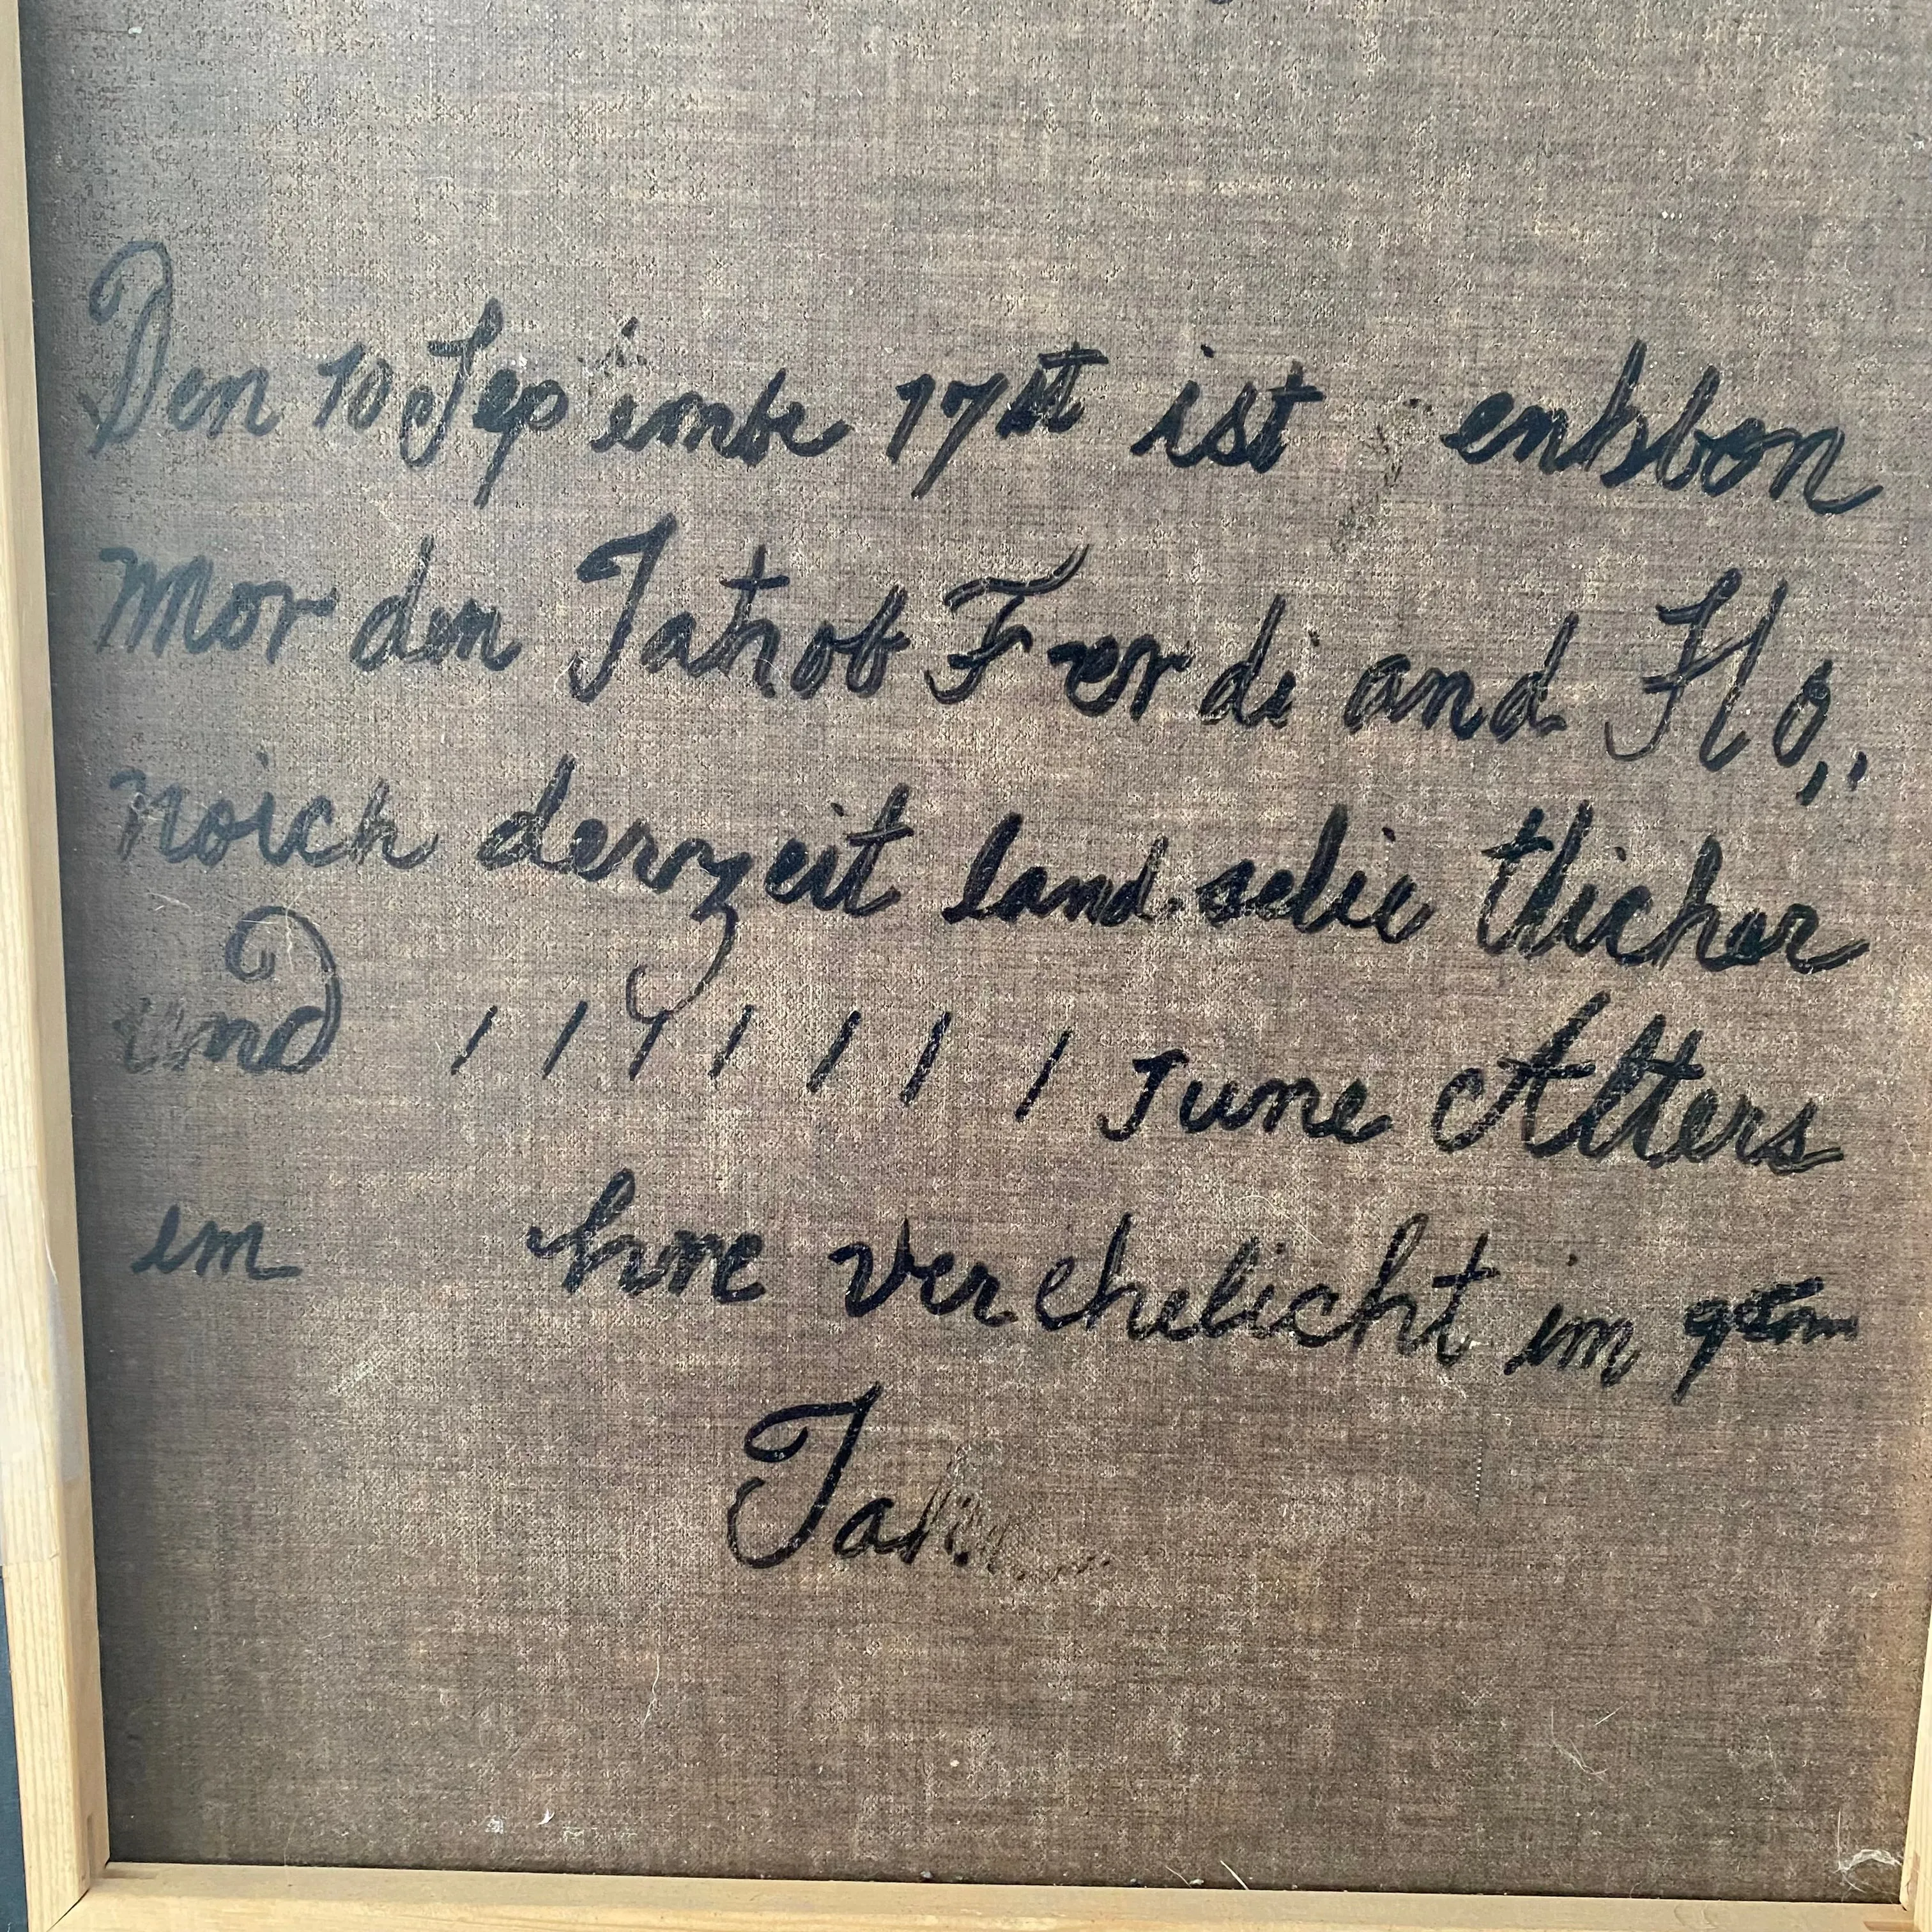 Den 10 Sep imbe 17 ist enkbon
Mor den Jakob Ferdi and Flö
noich derzeit land selic tlicher
und 1 1 1 1 1 1 1 June Alters
im hne verehelicht im
Jah